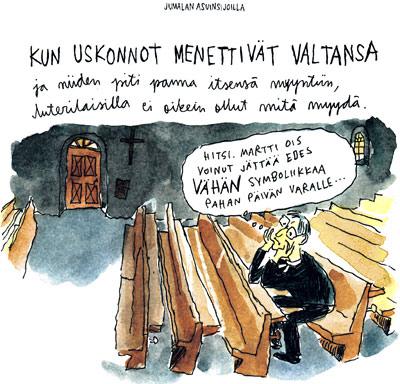 JUMALAN ASUINSIJOILLA
KUN USKONNOT MENETTIVÄT VALTANSA
ja niiden piti panna itsensä myyntiin,
luterilaisilla ei oikein ollut mitä myydä.
HITSI. MARTTI OIS
VOINUT JÄTTÄÄ EDES
VÄHÄN SYMBOLIIKKAA
PAHAN PÄIVÄN VARALLE...